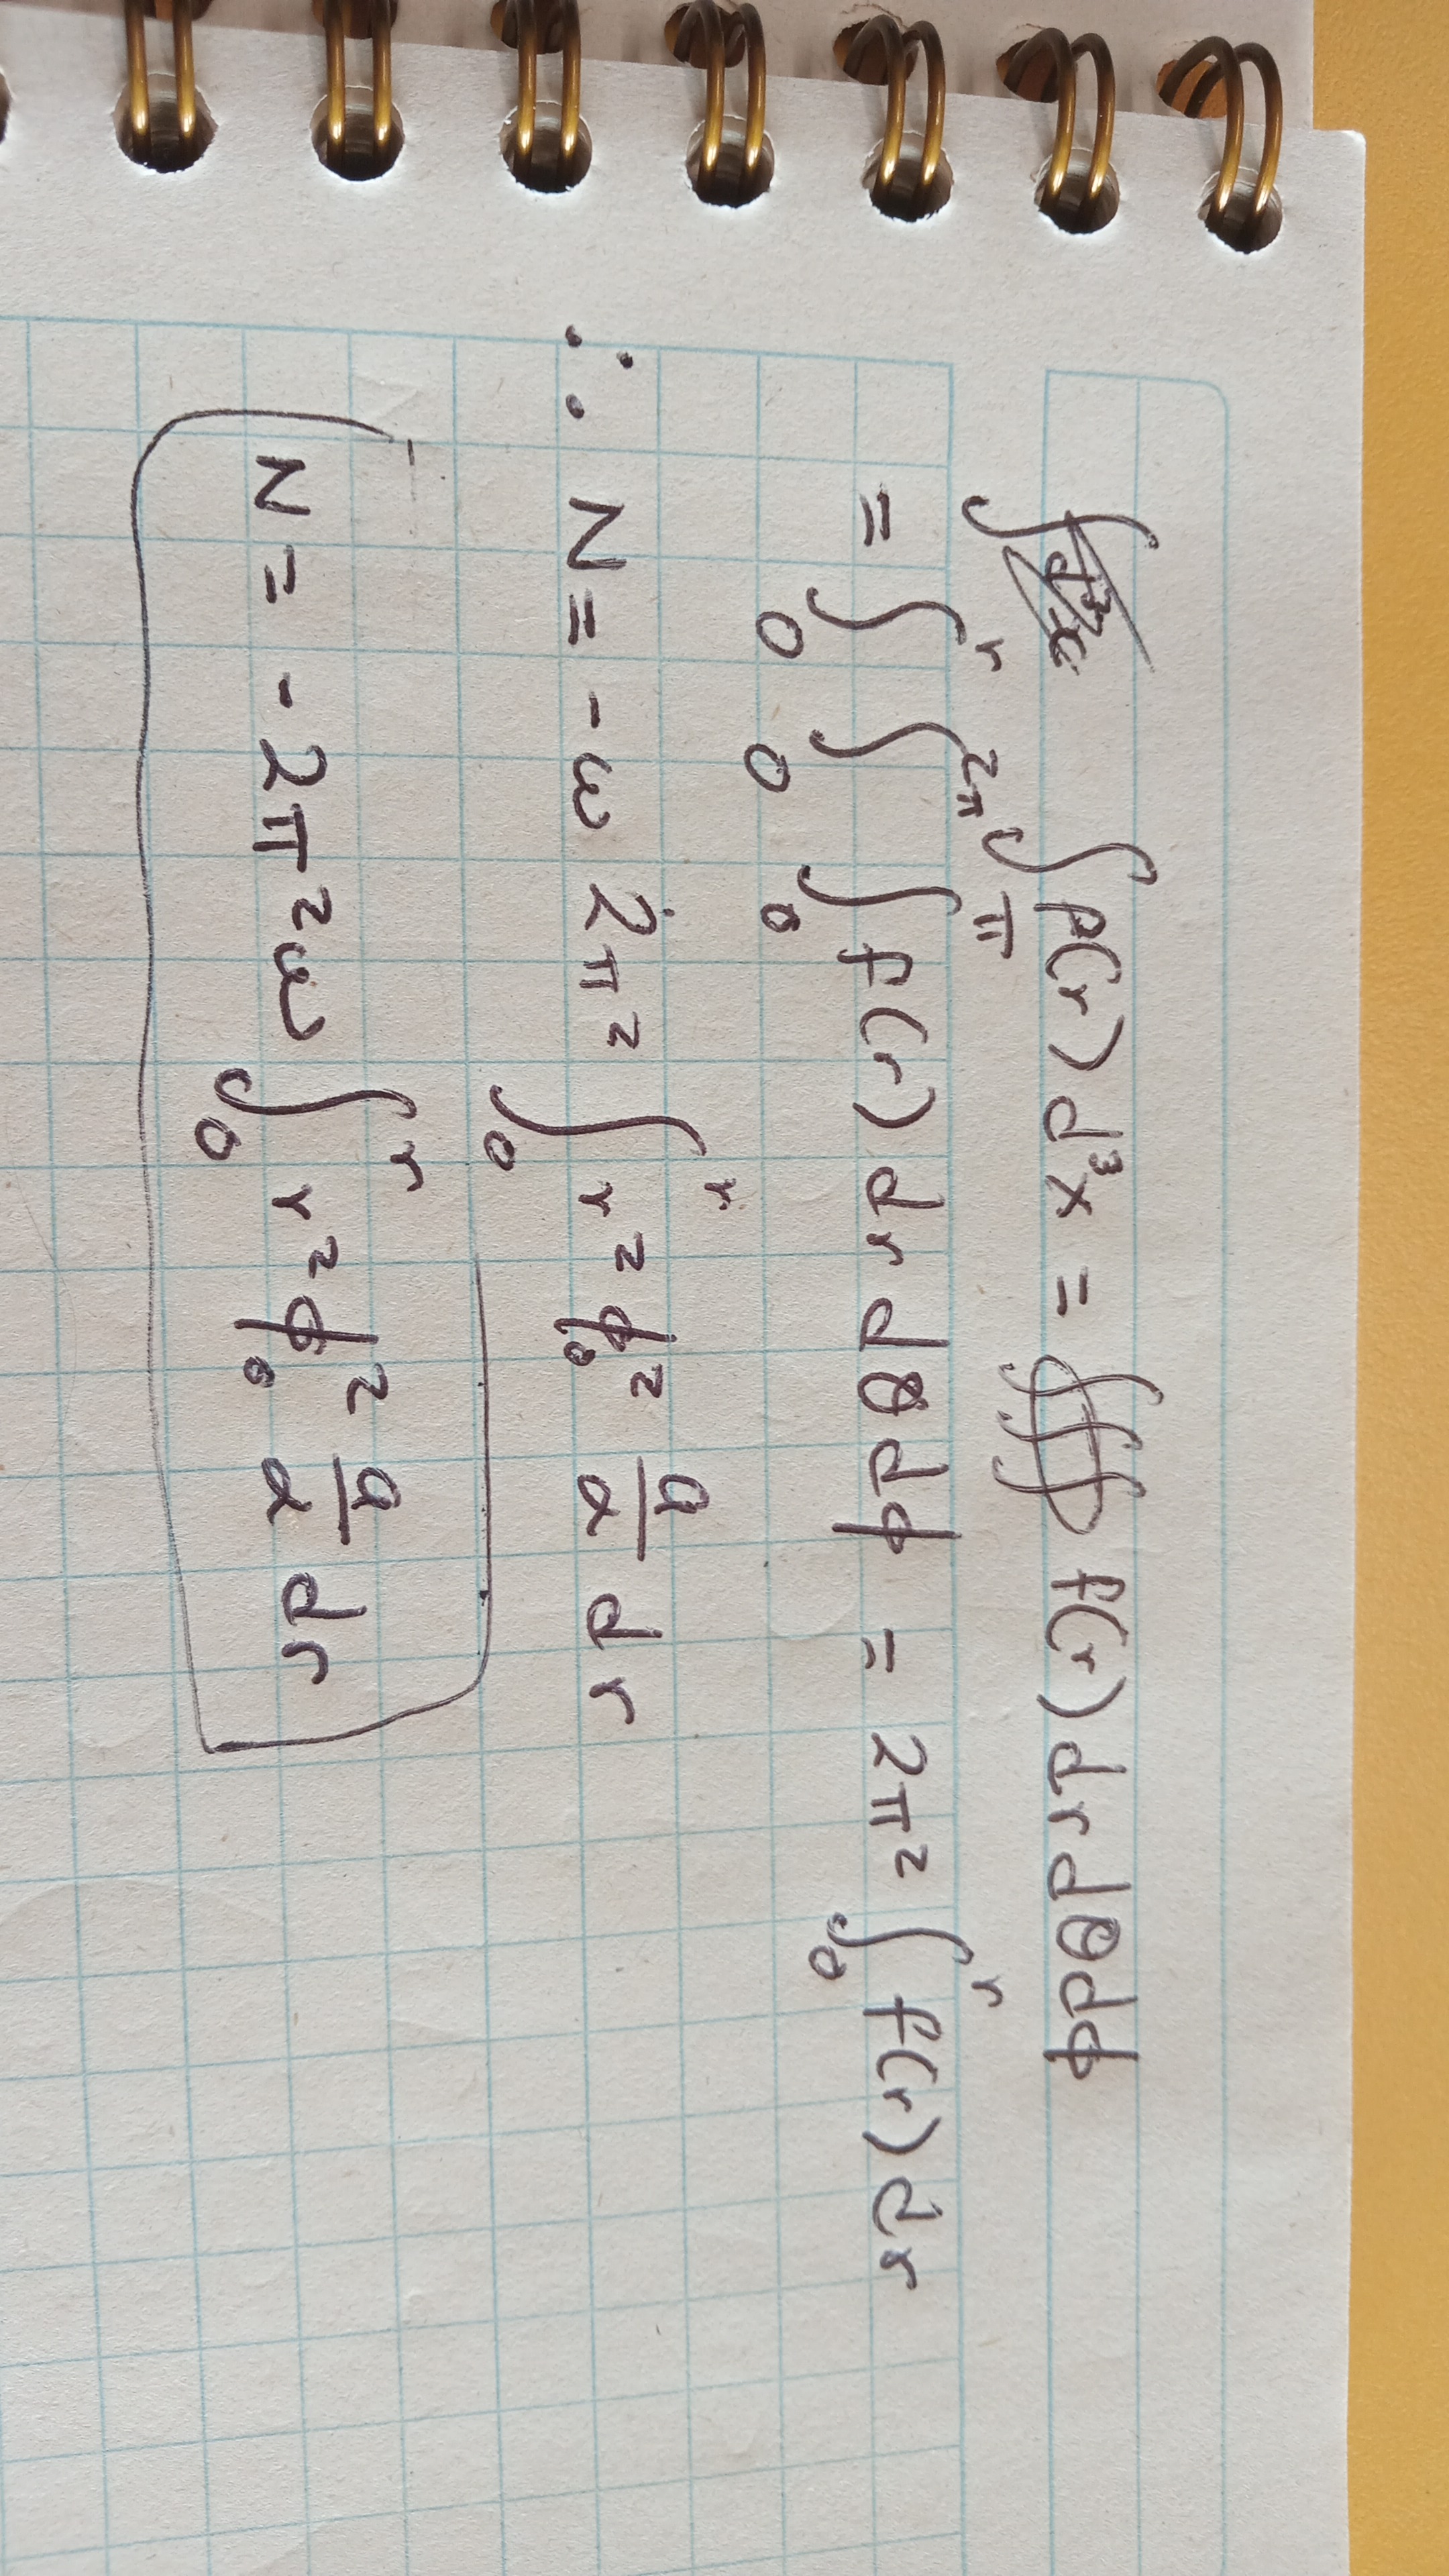 ∫ρ(r)d³x = ∭f(r)drdθdφ
= ∫₀^r ∫₀^2π ∫₀^π f(r)drdθdφ = 2π² ∫₀^r f(r)dr
∴ N = -ω 2π² ∫₀^r r² φ₀² a/α dr
N = -2π²ω ∫₀^r r² φ₀² a/α dr